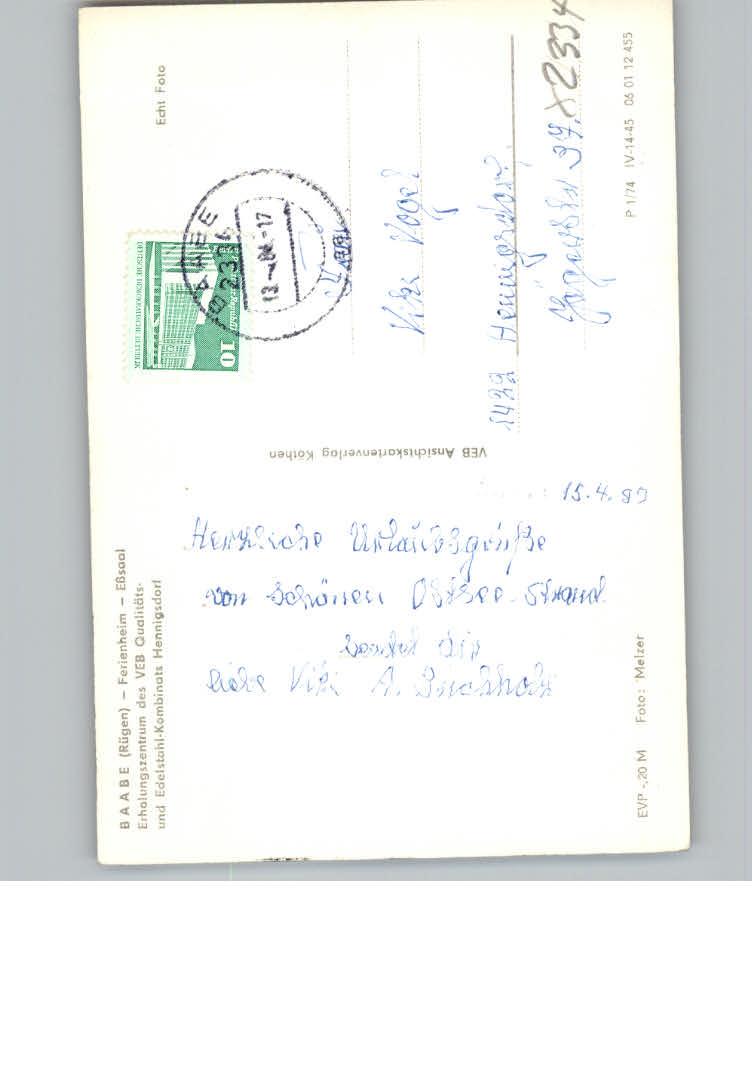 BAABE (Rügen) – Ferienheim – Eßsaal
Erholungszentrum des VEB Qualitäts-
und Edelstahl-Kombinats Hennigsdorf
Echt Foto
DEUTSCHE DEMOKRATISCHE REPUBLIK
10
2334
17
VEB Ansichtskartenverlag Köthen
15.4.80
Herzliche Urlaubsgrüße
von schönen Ostsee-Strand
sendet dir
liebe Viki A. Buchholz
Viki Vogel
1422 Hennigsdorf
27.
x2334
EVP -,20 M Foto: Melzer
P 1/74 IV-14-45 06 01 12 455